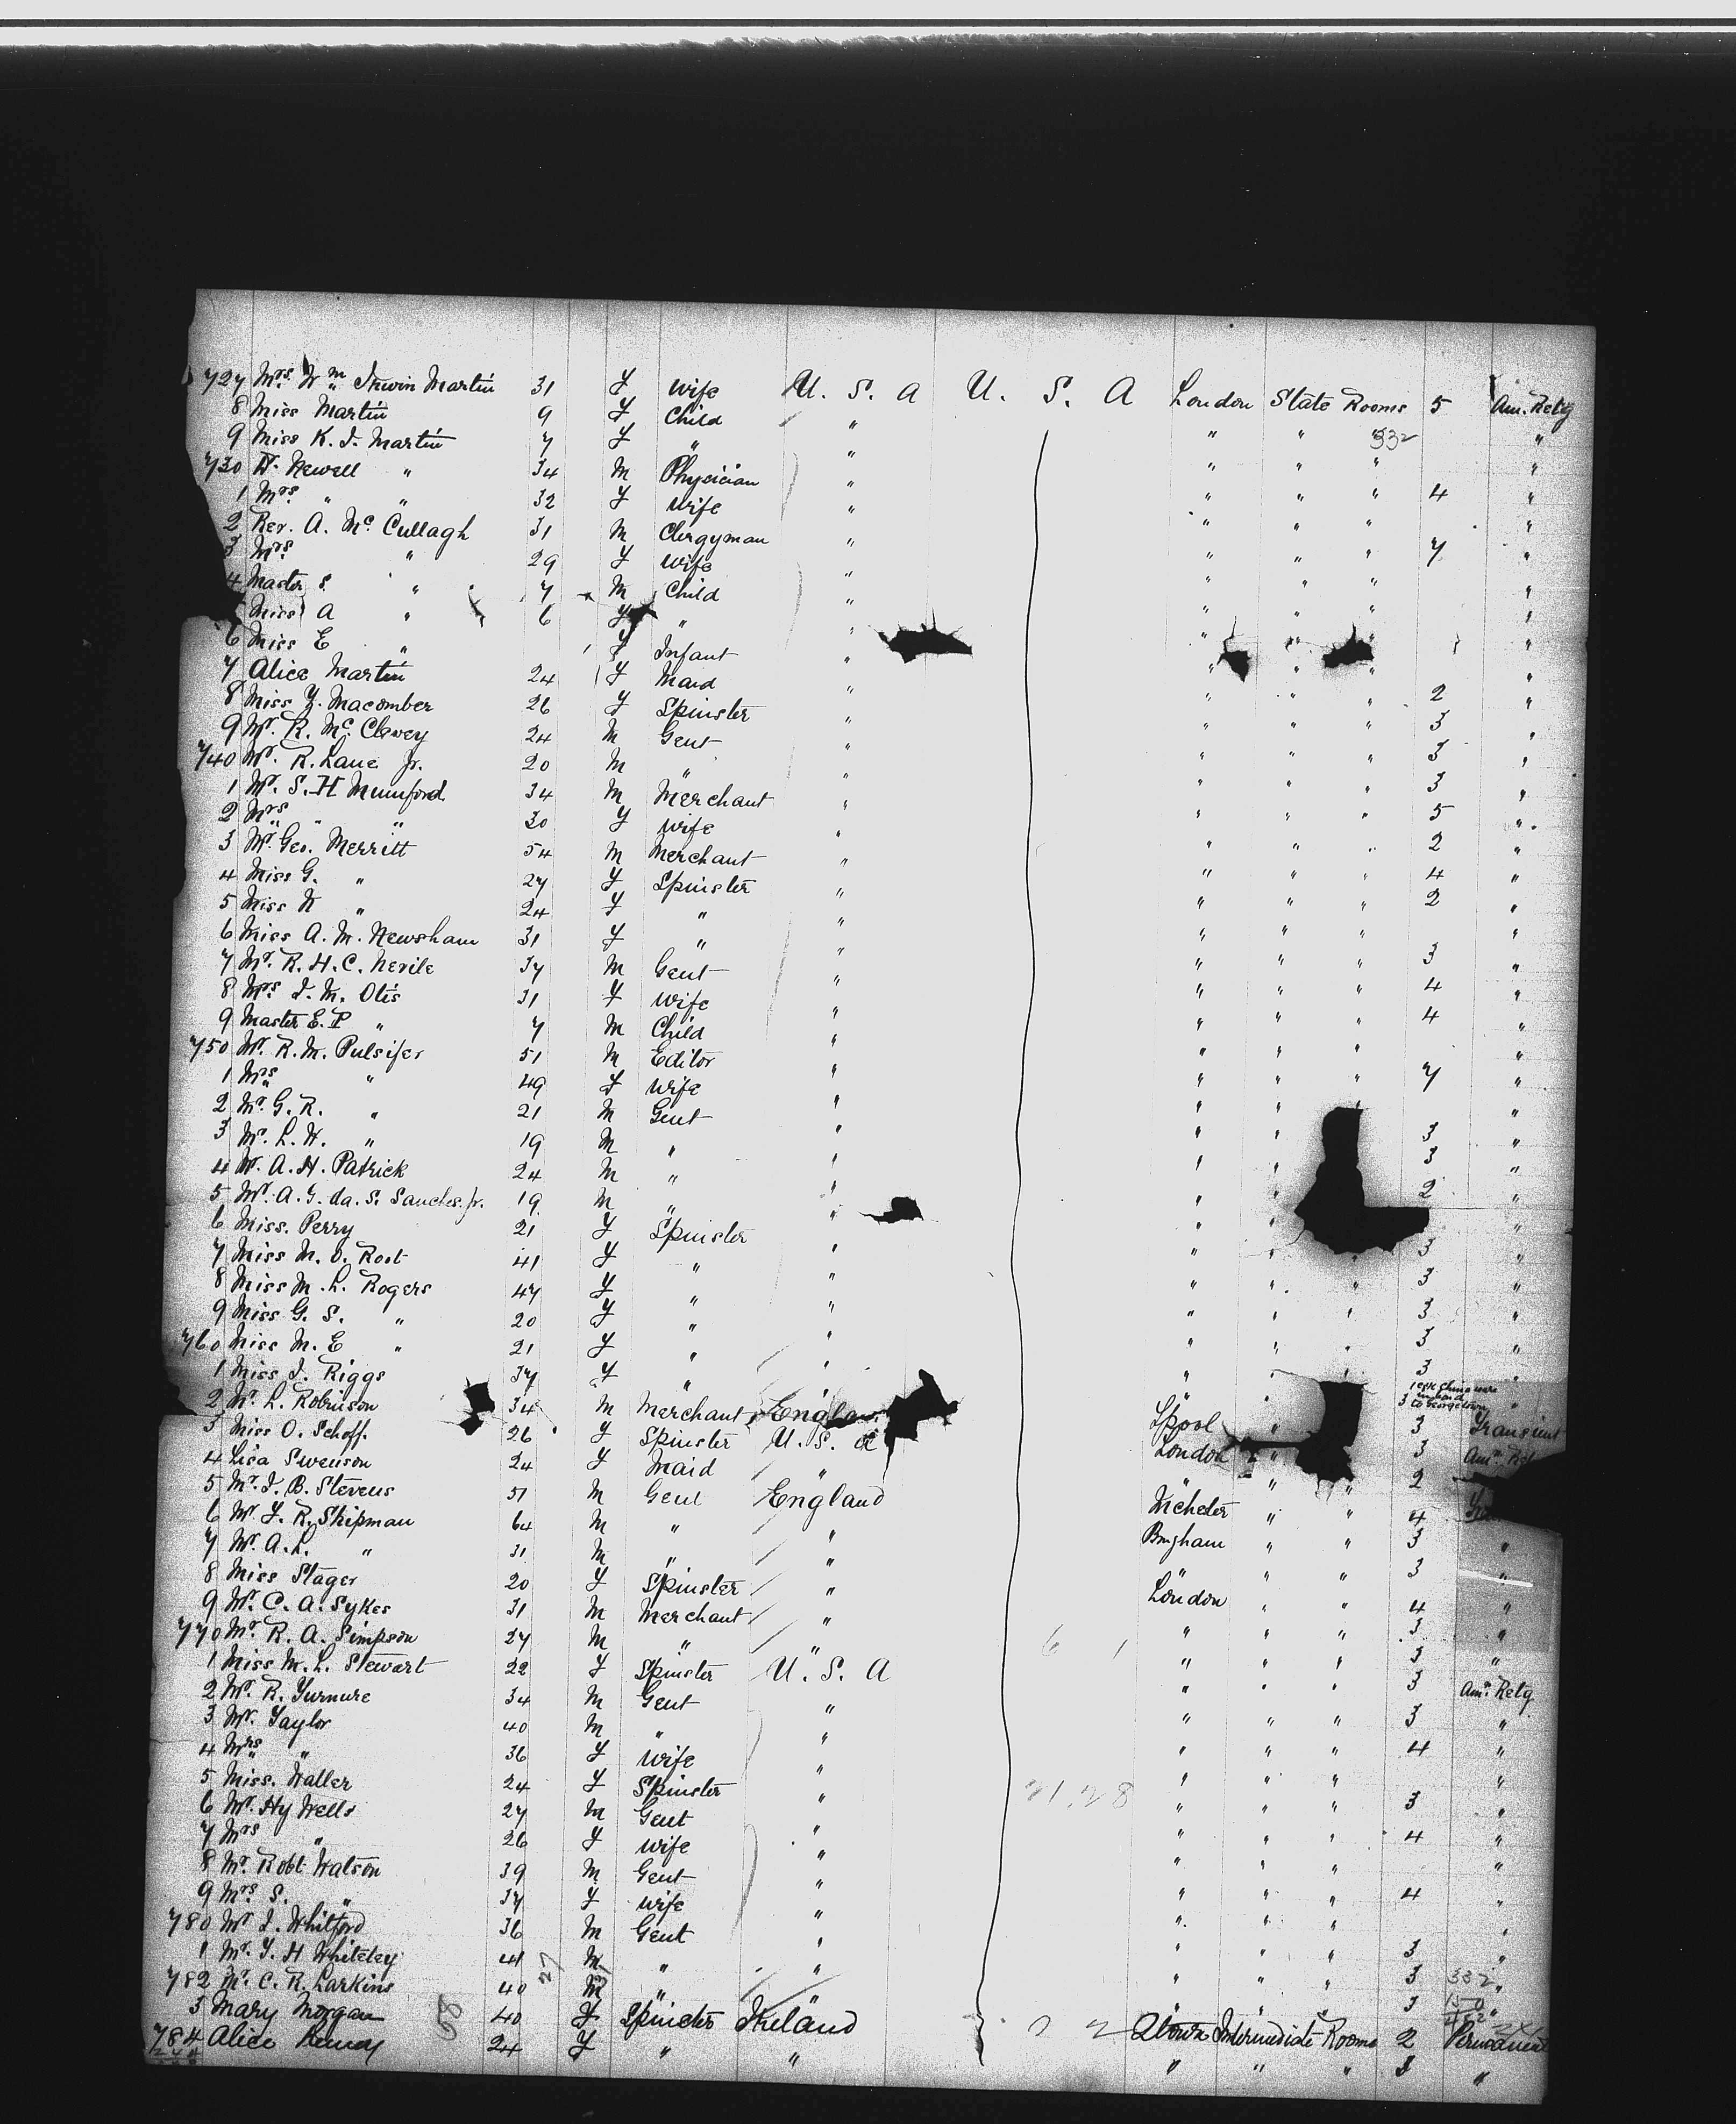 727 Mrs. Wm Irwin Martin 31 F Wife U. S. A U. S. A London State Rooms 5 Am. Retg
8 Miss Martin 9 F Child " " " 332 "
9 Miss K. I. Martin 7 F " " " " " "
730 W. Newell " 34 M Physician " " " " 4 "
1 Mrs. " " 32 F Wife " " " " "
2 Rev. A. Mc. Cullagh 31 M Clergyman " " " " 7 "
3 Mrs " 29 F Wife " " " " "
4 Master S. " 7 M Child " " " " "
Miss A " 6 F " " " " "
6 Miss E " F Infant " " " "
7 Alice Martin 24 F Maid " " " " 2 "
8 Miss Y. Macomber 26 F Spinster " " " " 3 "
9 Mr. R. Mc. Clevey 24 M Gent " " " " 3 "
740 Mr. R. Lane Jr. 20 M " " " " " 3 "
1 Mr. S. H Mumford 34 M Merchant " " " " 5 "
2 Mrs " " 30 F Wife " " " " 2 "
3 Mr. Geo. Merritt 54 M Merchant " " " " 4 "
4 Miss G. " 27 F Spinster " " " " 2 "
5 Miss N " 24 F " " " " " "
6 Miss A. M. Newsham 31 F " " " " " 3 "
7 Mr. R. H. C. Nevile 37 M Gent " " " " 4 "
8 Mrs I. M. Otis 31 F Wife " " " " 4 "
9 Master E. P " 7 M Child " " " " "
750 Mr. R. M. Pulsifer 51 M Editor " " " " 7 "
1 Mrs " 49 F Wife " " " "
2 Mr. G. R. " 21 M Gent " " " 3 "
3 Mr. L. H. " 19 M " " " " 3 "
4 Mr. A. H. Patrick 24 M " " " " 2 "
5 Mr. A. G. da. S. Sanches. Jr. 19 M " " " " "
6 Miss. Perry 21 F Spinster " " " 3 "
7 Miss M. O. Root 41 F " " " " " 3 "
8 Miss M. L. Rogers 47 F " " " " " 3 "
9 Miss G. S. " 20 F " " " " " 3 "
760 Miss M. E " 21 F " " " " " 3 "
1 Miss I. Riggs 37 F " " " "
2 Mr. L. Robinson 34 M Merchant England Lpool " 3 Transient
3 Miss O. Schoff. 26 F Spinster U. S. A London " 3 Amn. Ret
4 Lisa Swenson 24 F Maid " " " 2
5 Mr. I. B. Stevens 51 M Gent England Mcheter " " 4
6 Mr. F. R. Shipman 64 M " " Bmgham " " 3 "
7 Mr. A. L. " 31 M " " " " " 3 "
8 Miss Stager 20 F Spinster " London " " 4 "
9 Mr. C. A. Sykes 31 M Merchant " " " " 3 "
770 Mr. R. A. Simpson 27 M " " 6 1 " " " 3 "
1 Miss M. L. Stewart 22 F Spinster U. S. A " " " 3 Amn. Retg
2 Mr. R. Turnure 34 M Gent " " " " 3 "
3 Mr. Taylor 40 M " " " " " 4 "
4 Mrs " 36 F Wife " " " " "
5 Miss. Waller 24 F Spinster " " " " 3 "
6 Mr. Hy Wells 27 M Gent " " " " 4 "
7 Mrs " 26 F Wife " " " " "
8 Mr. Robt Watson 39 M Gent " " " " 4 "
9 Mrs S. " 37 F Wife " " " " "
780 Mr I. Whitford 36 M Gent " " " " 3 "
1 Mr. T. H Whiteley 41 M " " " " " 3 332 "
782 Mr. C. R. Larkins 40 M " " " " " 3 "
3 Mary Morgan 40 F Spinster Ireland Qtown Intermediate Rooms 2 Permanent
784 Alice 24 F " " " " " 3 "